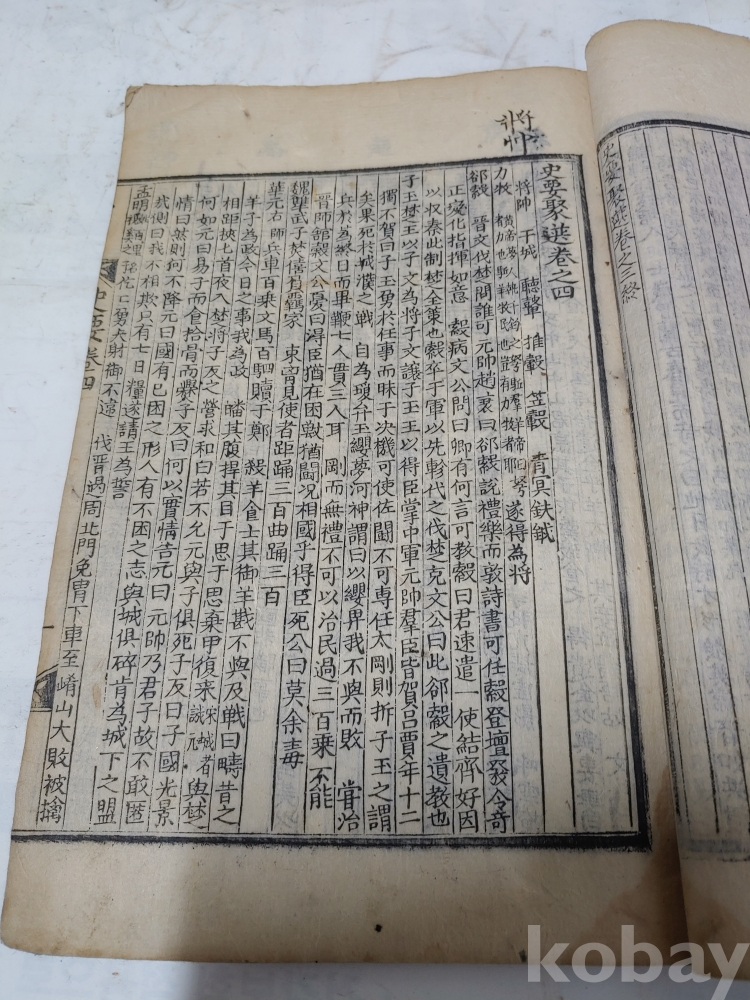 史要聚選卷之三終
將帥
史要聚選卷之四
將帥 干城 聽鼙 推轂 笠轂 青冥鈇鉞
力牧 遂得為將
郤縠 晉文伐楚問誰可元帥趙衰曰郤縠說禮樂而敦詩書可任縠登壇發令奇
正變化指揮如意 縠病文公問曰卿有何言可教縠曰君速遣一使結齊好因
以収秦此制楚全策也縠卒于軍以先軫代之伐楚克文公曰此郤縠之遺教也
子玉楚之王以子文為將子文讓子玉王以得臣掌中軍元帥羣臣皆賀呂賈年十二
獨不賀曰子玉勇於任事而昧于决機可使佐閫不可專任太剛則折子玉之謂
矣果死於城濮之戦 自為瓊弁玉纓夢河神謂曰以纓畀我不與而敗 甞治
兵於蔿終日而畢鞭七人貫三人耳 剛而無禮不可以治民過三百乘不能
晉師舘穀文公憂曰得臣猶在困獸猶鬪况相國乎得臣死公曰莫余毒
魏犨武子於僖負羈家 束胷見使者距踊三百曲踊三百
華元右師兵車百乘文馬百駟贖于鄭 殺羊食士其御羊斟不與及戦曰疇昔之
羊子為政今日之事我為政 皤其腹捍其目于思于思棄甲復來 宋城者誚元 與楚
相距挾匕首夜入楚將子反之營求和曰若不允元與子俱死子反曰子國光景
何如元曰易子而食拾骨而爨子反曰何以實情告元曰元帥乃君子故不敢匿
情曰然則何不降元曰國有已困之形人有不困之志與城俱碎肯為城下之盟
我側曰我不相欺只有七日糧遂請王為誓
孟明視 勇夫射御不違 伐晋過周北門免胄下車至崤山大敗被擒
史要 卷四
kobay